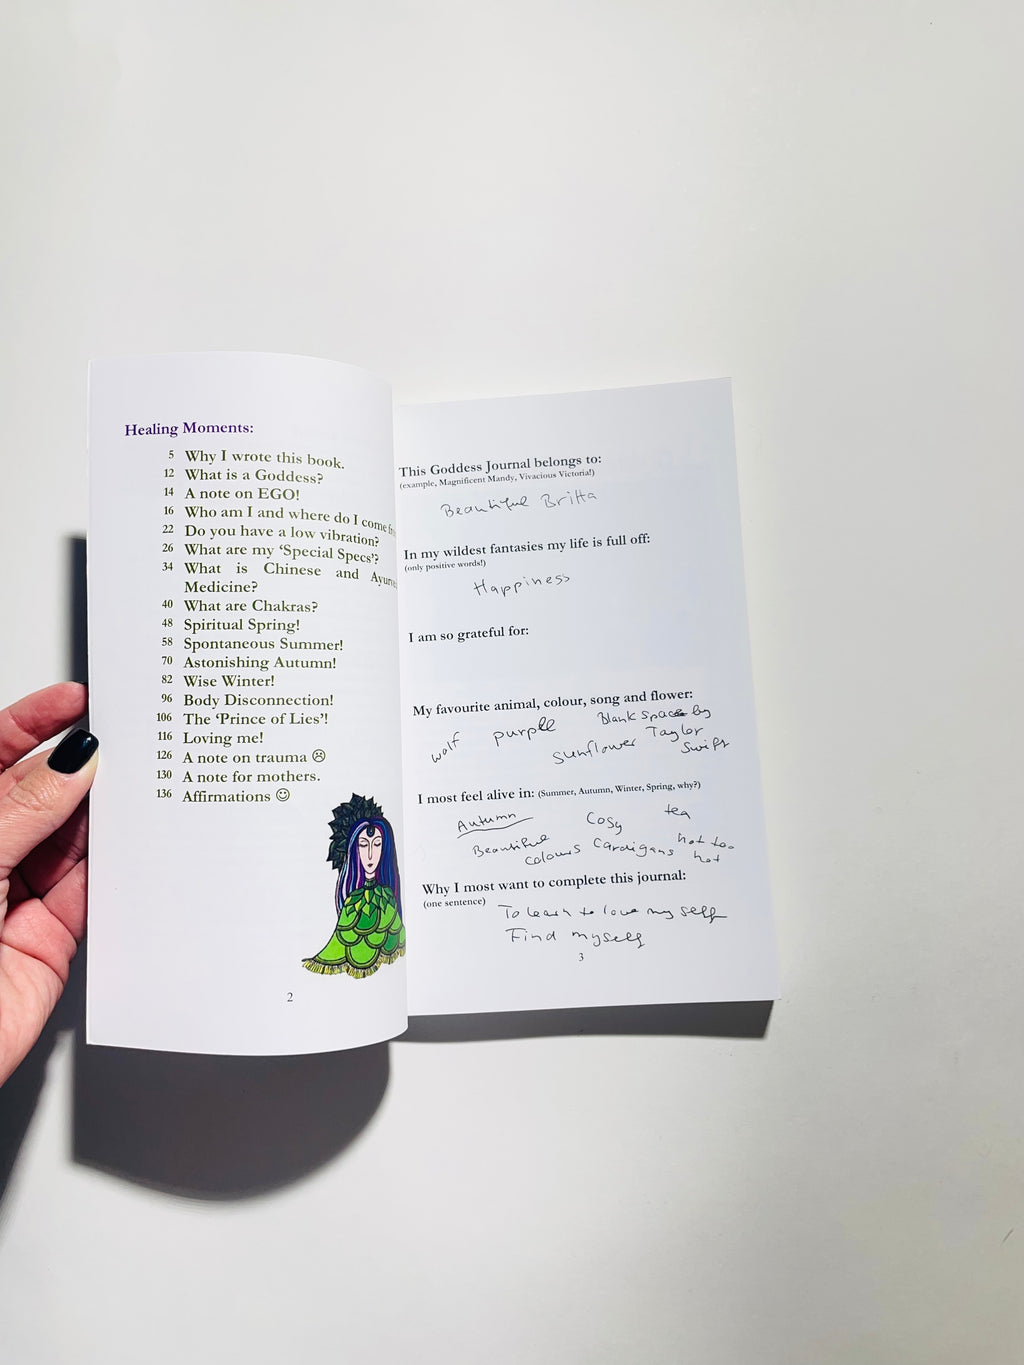 Healing Moments:
5 Why I wrote this book.
12 What is a Goddess?
14 A note on EGO!
16 Who am I and where do I come
22 Do you have a low vibration?
26 What are my ‘Special Specs’?
34 What is Chinese and
Medicine?
40 What are Chakras?
48 Spiritual Spring!
58 Spontaneous Summer!
70 Astonishing Autumn!
82 Wise Winter!
96 Body Disconnection!
106 The ‘Prince of Lies’!
116 Loving me!
126 A note on trauma ☹
130 A note for mothers.
136 Affirmations ☺
2
This Goddess Journal belongs to:
(example, Magnificent Mandy, Vivacious Victoria!)
Beautiful Britta
In my wildest fantasies my life is full off:
(only positive words!)
Happiness
I am so grateful for:
My favourite animal, colour, song and flower:
wolf purple Blank space by
sunflower Taylor
Swift
I most feel alive in: (Summer, Autumn, Winter, Spring, why?)
Autumn Cosy tea
Beautiful colours Cardigans not too
hot
Why I most want to complete this journal:
(one sentence) To learn to love my self
Find myself
3